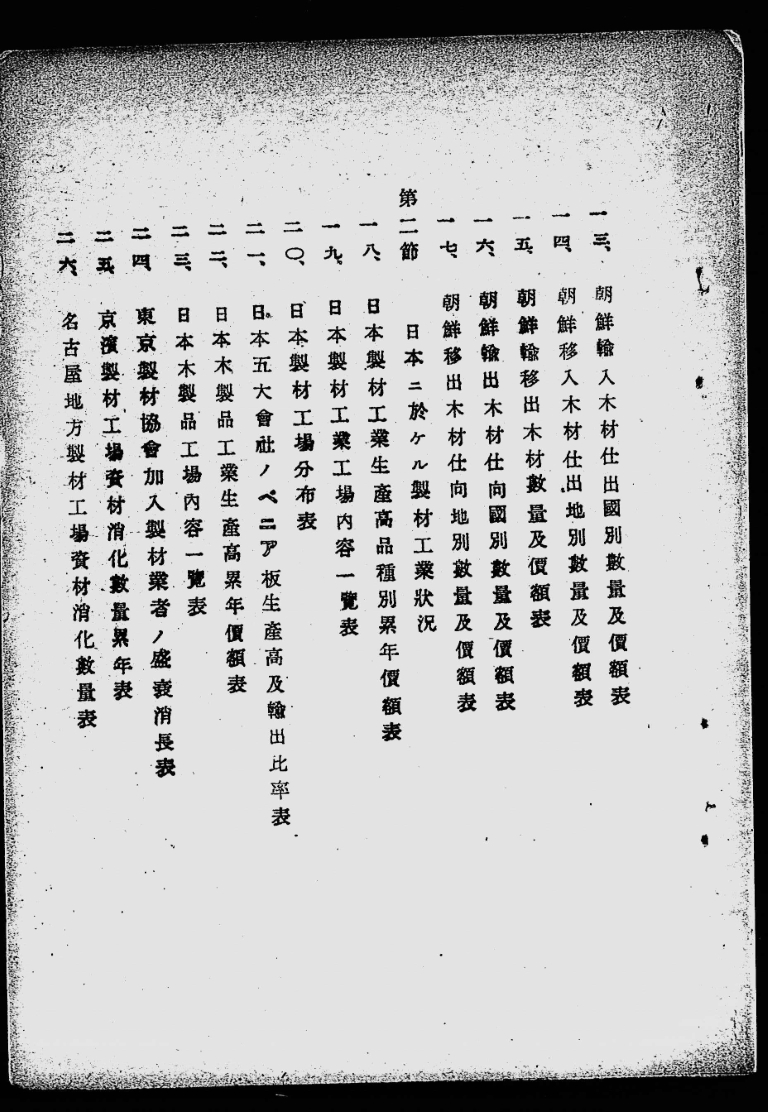 一三、朝鮮輸入木材仕出國別數量及價額表
一四、朝鮮移入木材仕出地別數量及價額表
一五、朝鮮輸移出木材數量及價額表
一六、朝鮮輸出木材仕向國別數量及價額表
一七、朝鮮移出木材仕向地別數量及價額表
第二節 日本ニ於ケル製材工業狀況
一八、日本製材工業生產高品種別累年價額表
一九、日本製材工業工場內容一覽表
二〇、日本製材工場分布表
二一、日本五大會社ノベニア板生產高及輸出比率表
二二、日本木製品工業生產高累年價額表
二三、日本木製品工場內容一覽表
二四、東京製材協會加入製材業者ノ盛衰消長表
二五、京濱製材工場資材消化數量累年表
二六、名古屋地方製材工場資材消化數量表